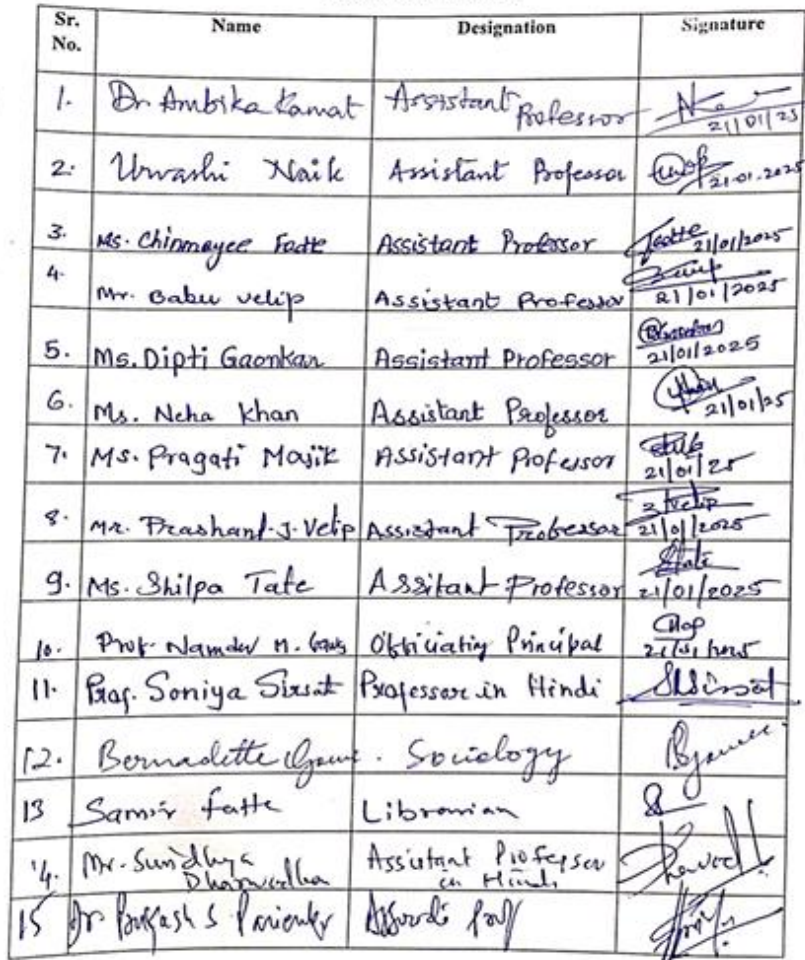 Sr. No. Name Designation Signature
1. Dr Ambika Kamat Assistant Professor 21/01/25
2. Urvashi Naik Assistant Professor 21.01.2025
3. Ms. Chinmayee Fatte Assistant Professor 21/01/2025
4. Mr. Babu Velip Assistant Professor 21/01/2025
5. Ms. Dipti Gaonkar Assistant Professor 21/01/2025
6. Ms. Neha Khan Assistant Professor 21/01/25
7. Ms. Pragati Majik Assistant Professor 21/01/25
8. Mr. Prashant. J. Velip Assistant Professor Velip 21/01/2025
9. Ms. Shilpa Tate Assitant Professor 21/01/2025
10. Prof. Namdev M. Officiating Principal 21/01/2025
11. Prof. Soniya Sirsat Professor in Hindi Sirsat
12. Bernadette Sociology
13 Samir Fatte Librarian
14. Mr. Assistant Professor in Hindi
15 Dr S